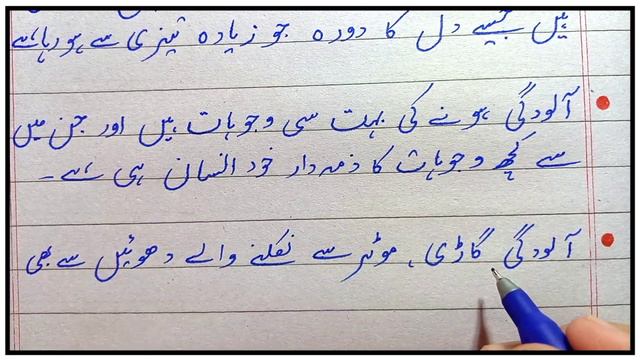 ہیں جیسے دل کا دورہ جو زیادہ تیزی سے ہو رہا ہے
آلودگی ہونے کی بہت سی وجوہات ہیں اور جن میں
سے کچھ وجوہات کا ذمہ دار خود انسان ہی ہے۔
آلودگی گاڑی، موٹر سے نکلنے والے دھوئیں سے بھی